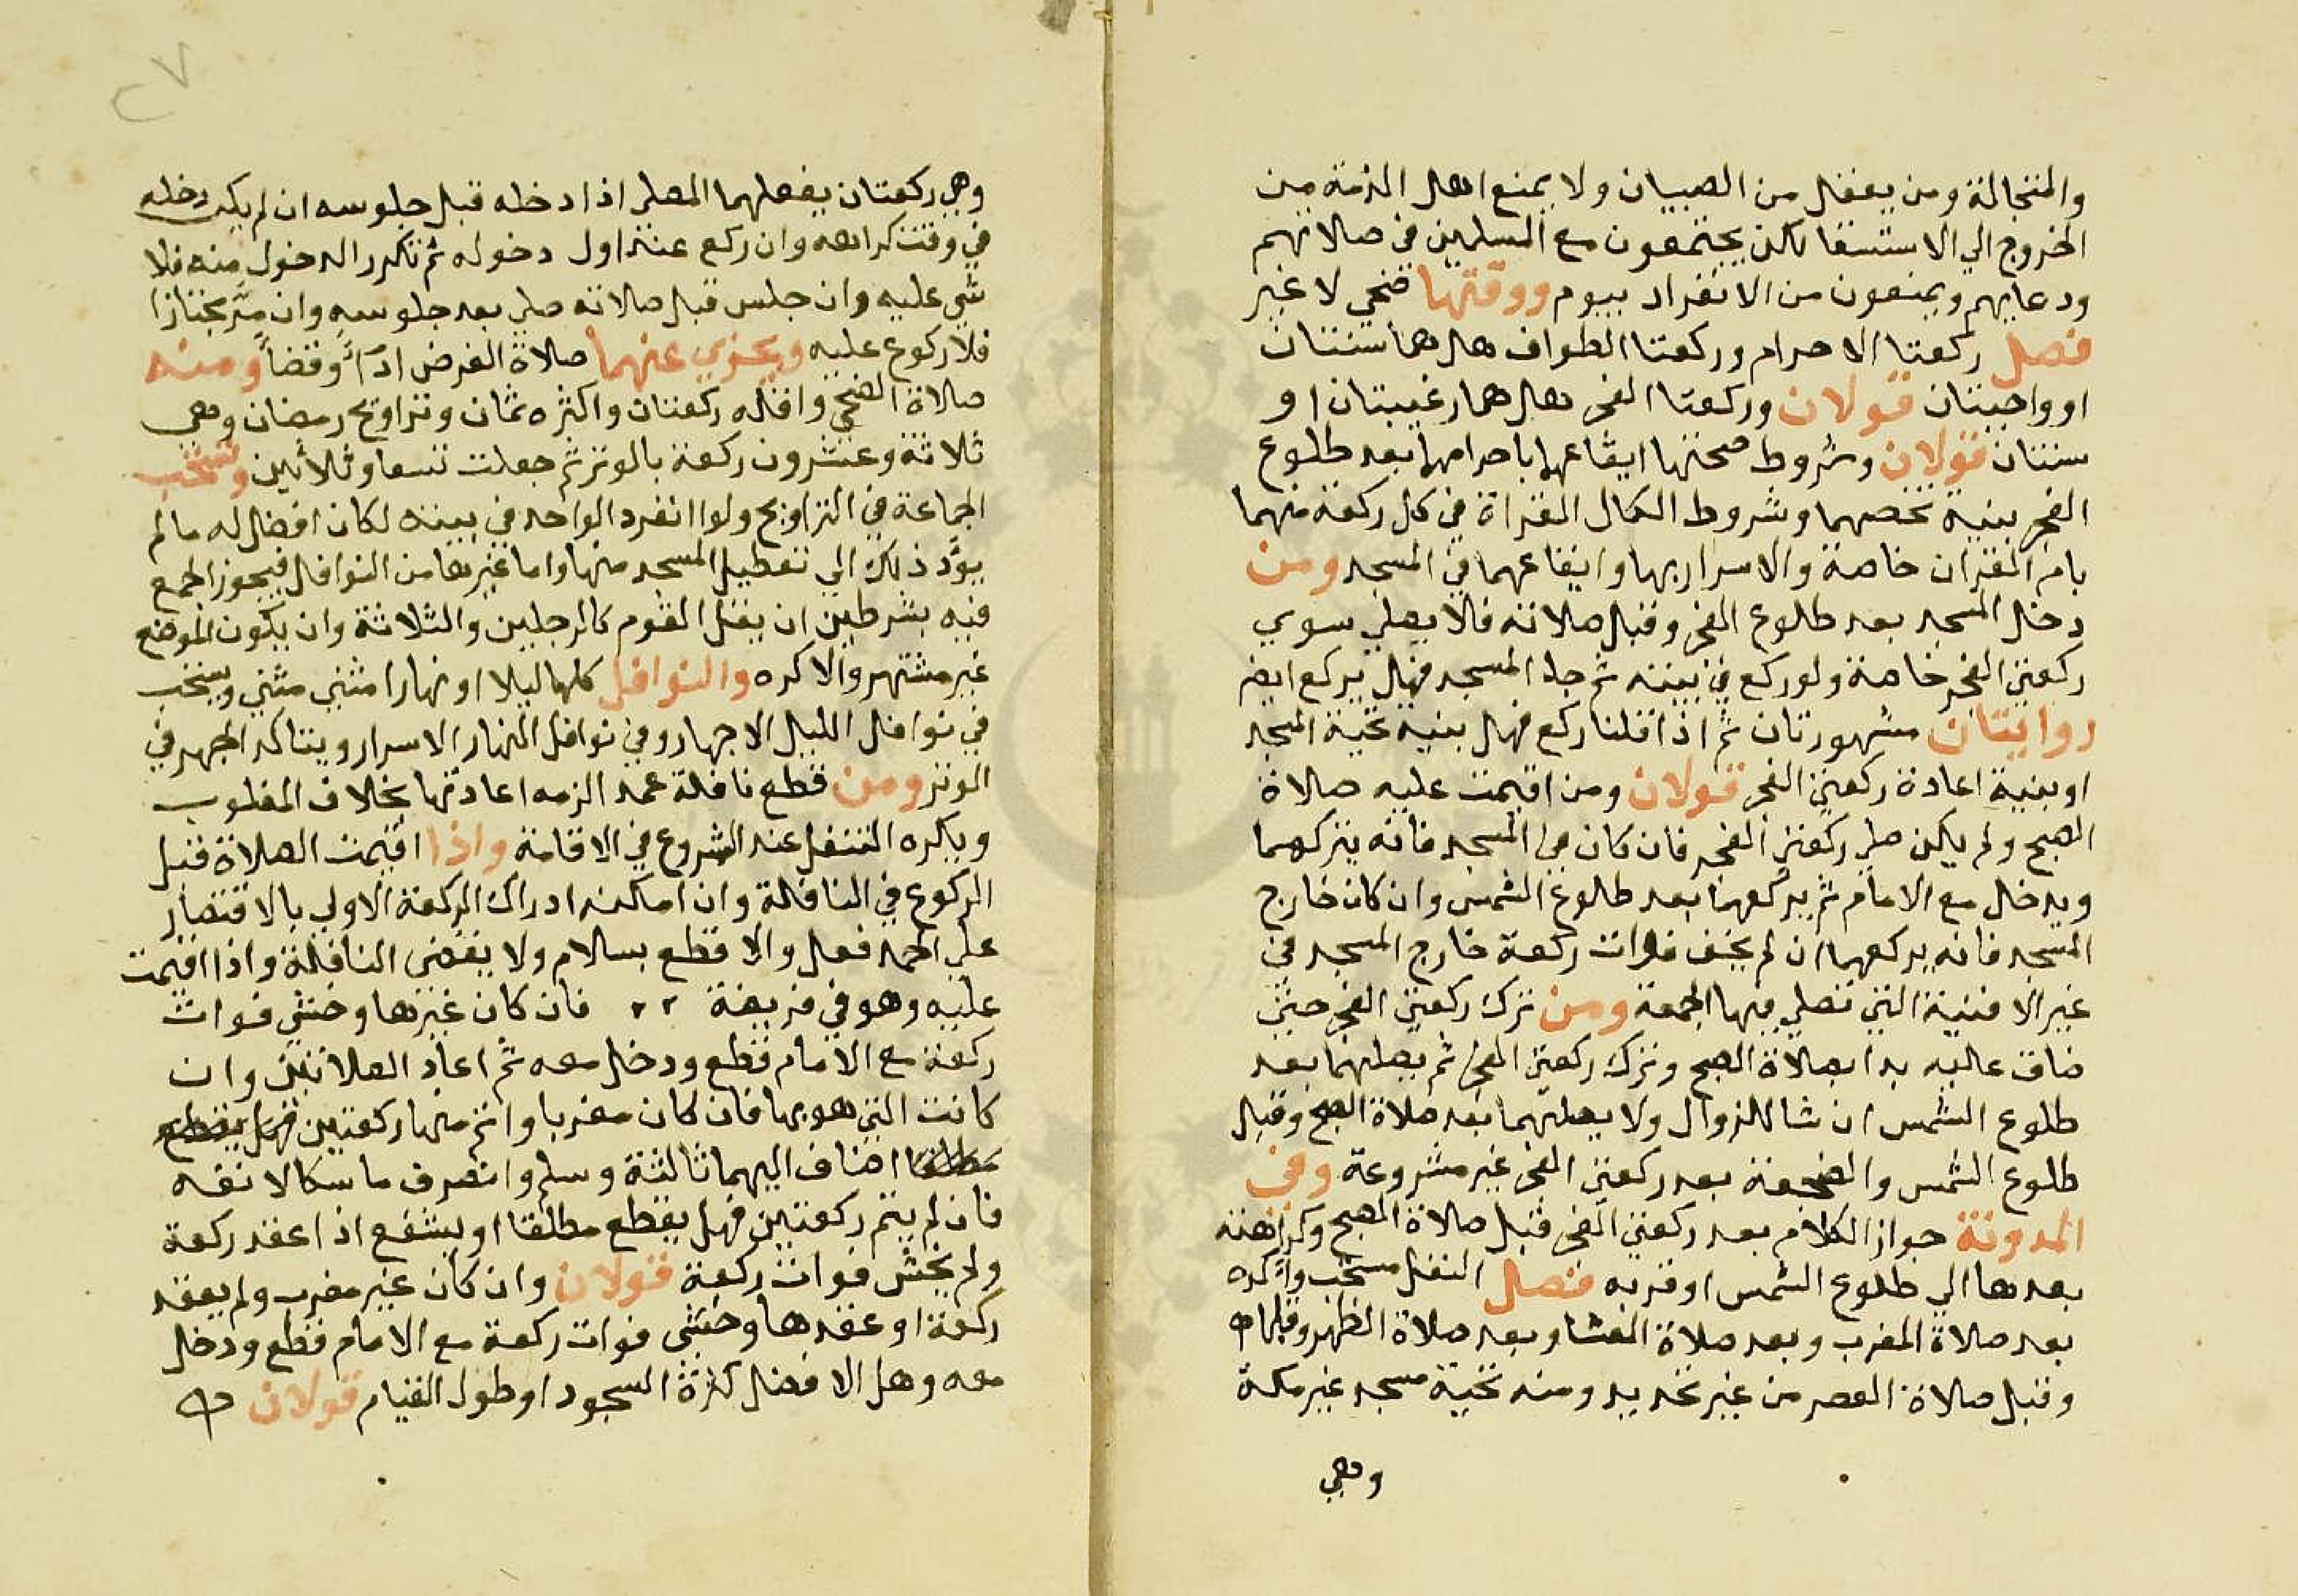 والمتجالة ومن يعقل من الصبيان ولا يمنع اهل الذمة من
الخروج الي الاستسقا لكن يجتمعون مع المسلمين في صلاتهم
ودعايهم ويمنعون من الانفراد بيوم ووقتها ضحي لا غير
فصل ركعتا الاحرام وركعتا الطواف هل هما سنتان
او واجبتان قولان وركعتا الفجر هل هما رغيبتان او
سنتان قولان وشروط صحتها ايقاعهما باحرامهما بعد طلوع
الفجر بنية تخصهما وشروط الكمال القراة في كل ركعة منهما
بام القران خاصة والاسرار بها وايقاعهما في المسجد ومن
دخل المسجد بعد طلوع الفجر وقبل صلاته فلا يصلي سوي
ركعتي الفجر خاصة ولو ركع في بيته ثم جا المسجد فهل يركع ايضا
روايتان مشهورتان ثم اذا قلنا ركع فهل بنية تحية المسجد
او بنية اعادة ركعتي الفجر قولان ومن اقيمت عليه صلاة
الصبح ولم يكن صلي ركعتي الفجر فان كان في المسجد فانه يتركهما
ويدخل مع الامام ثم يركعهما بعد طلوع الشمس وان كان خارج
المسجد فانه يركعهما ان لم يخف فوات ركعة خارج المسجد في
غير الافنية التي تصلي فيها الجمعة ومن ترك ركعتي الفجر حتي
ضاق عليه بدا بصلاة الصبح وترك ركعتي الفجر ثم يصليهما بعد
طلوع الشمس ان شا للزوال ولا يصليهما بعد صلاة الصبح وقبل
طلوع الشمس والضجعة بعد ركعتي الفجر غير مشروعة وفي
المدونة جواز الكلام بعد ركعتي الفجر قبل صلاة الصبح وكراهته
بعدها الي طلوع الشمس او قربه فصل النفل مستحب واكده
بعد صلاة المغرب وبعد صلاة العشا وبعد صلاة الظهر وقبلها
وقبل صلاة العصر من غير تحديد ومنه تحية مسجد غير مكة
وهي
٢٧
وهي ركعتان يفعلهما المصلي اذا دخله قبل جلوسه ان لم يكن دخله
في وقت كراهه وان ركع عند اول دخوله ثم تكرر الدخول منه فلا
شي عليه وان جلس قبل صلاته صلي بعد جلوسه وان مر مجتازا
فلا ركوع عليه ويجزي عنهما صلاة الفرض اداً وقضاً ومنه
صلاة الضحي واقله ركعتان واكثره ثمان وتراويح رمضان وهي
ثلاثة وعشرون ركعة بالوتر ثم جعلت تسعا وثلاثين وتستحب
الجماعة في التراويح ولو انفرد الواحد في بيته لكان افضل له ما لم
يؤد ذلك الي تعطيل المسجد منها واما غيرها من النوافل فيجوز الجمع
فيه بشرطين ان يقل القوم كالرجلين والثلاثة وان يكون الموضع
غير مشتهر والا كره والنوافل كلها ليلا او نهارا مثني مثني ويستحب
في نوافل الليل الاجهار وفي نوافل النهار الاسرار ويتاكد الجهر في
الوتر ومن قطع نافلة عمدا لزمه اعادتها بخلاف المغلوب
ويكره التنفل عند الشروع في الاقامة واذا اقيمت الصلاة قبل
الركوع في النافلة وان امكنه ادراك الركعة الاولي بالاقتصار
علي الحمد فعل والا قطع بسلام ولا يقضي النافلة واذا اقيمت
عليه وهو في فريضة فان كان غيرها وخشي فوات
ركعة مع الامام قطع ودخل معه ثم اعاد الصلاتين وان
كانت التي هو بها فان كان مغربا واتم منها ركعتين فهل يقطع
مطلقا اضاف اليهما ثالثة وسلم وانصرف ماسكا لانفه
فان لم يتم ركعتين فهل يقطع مطلقا او يشفع اذا عقد ركعة
ولم يخش فوات ركعة قولان وان كان غير مغرب ولم يعقد
ركعة او عقدها وخشي فوات ركعة مع الامام قطع ودخل
معه وهل الافضل كثرة السجود او طول القيام قولان